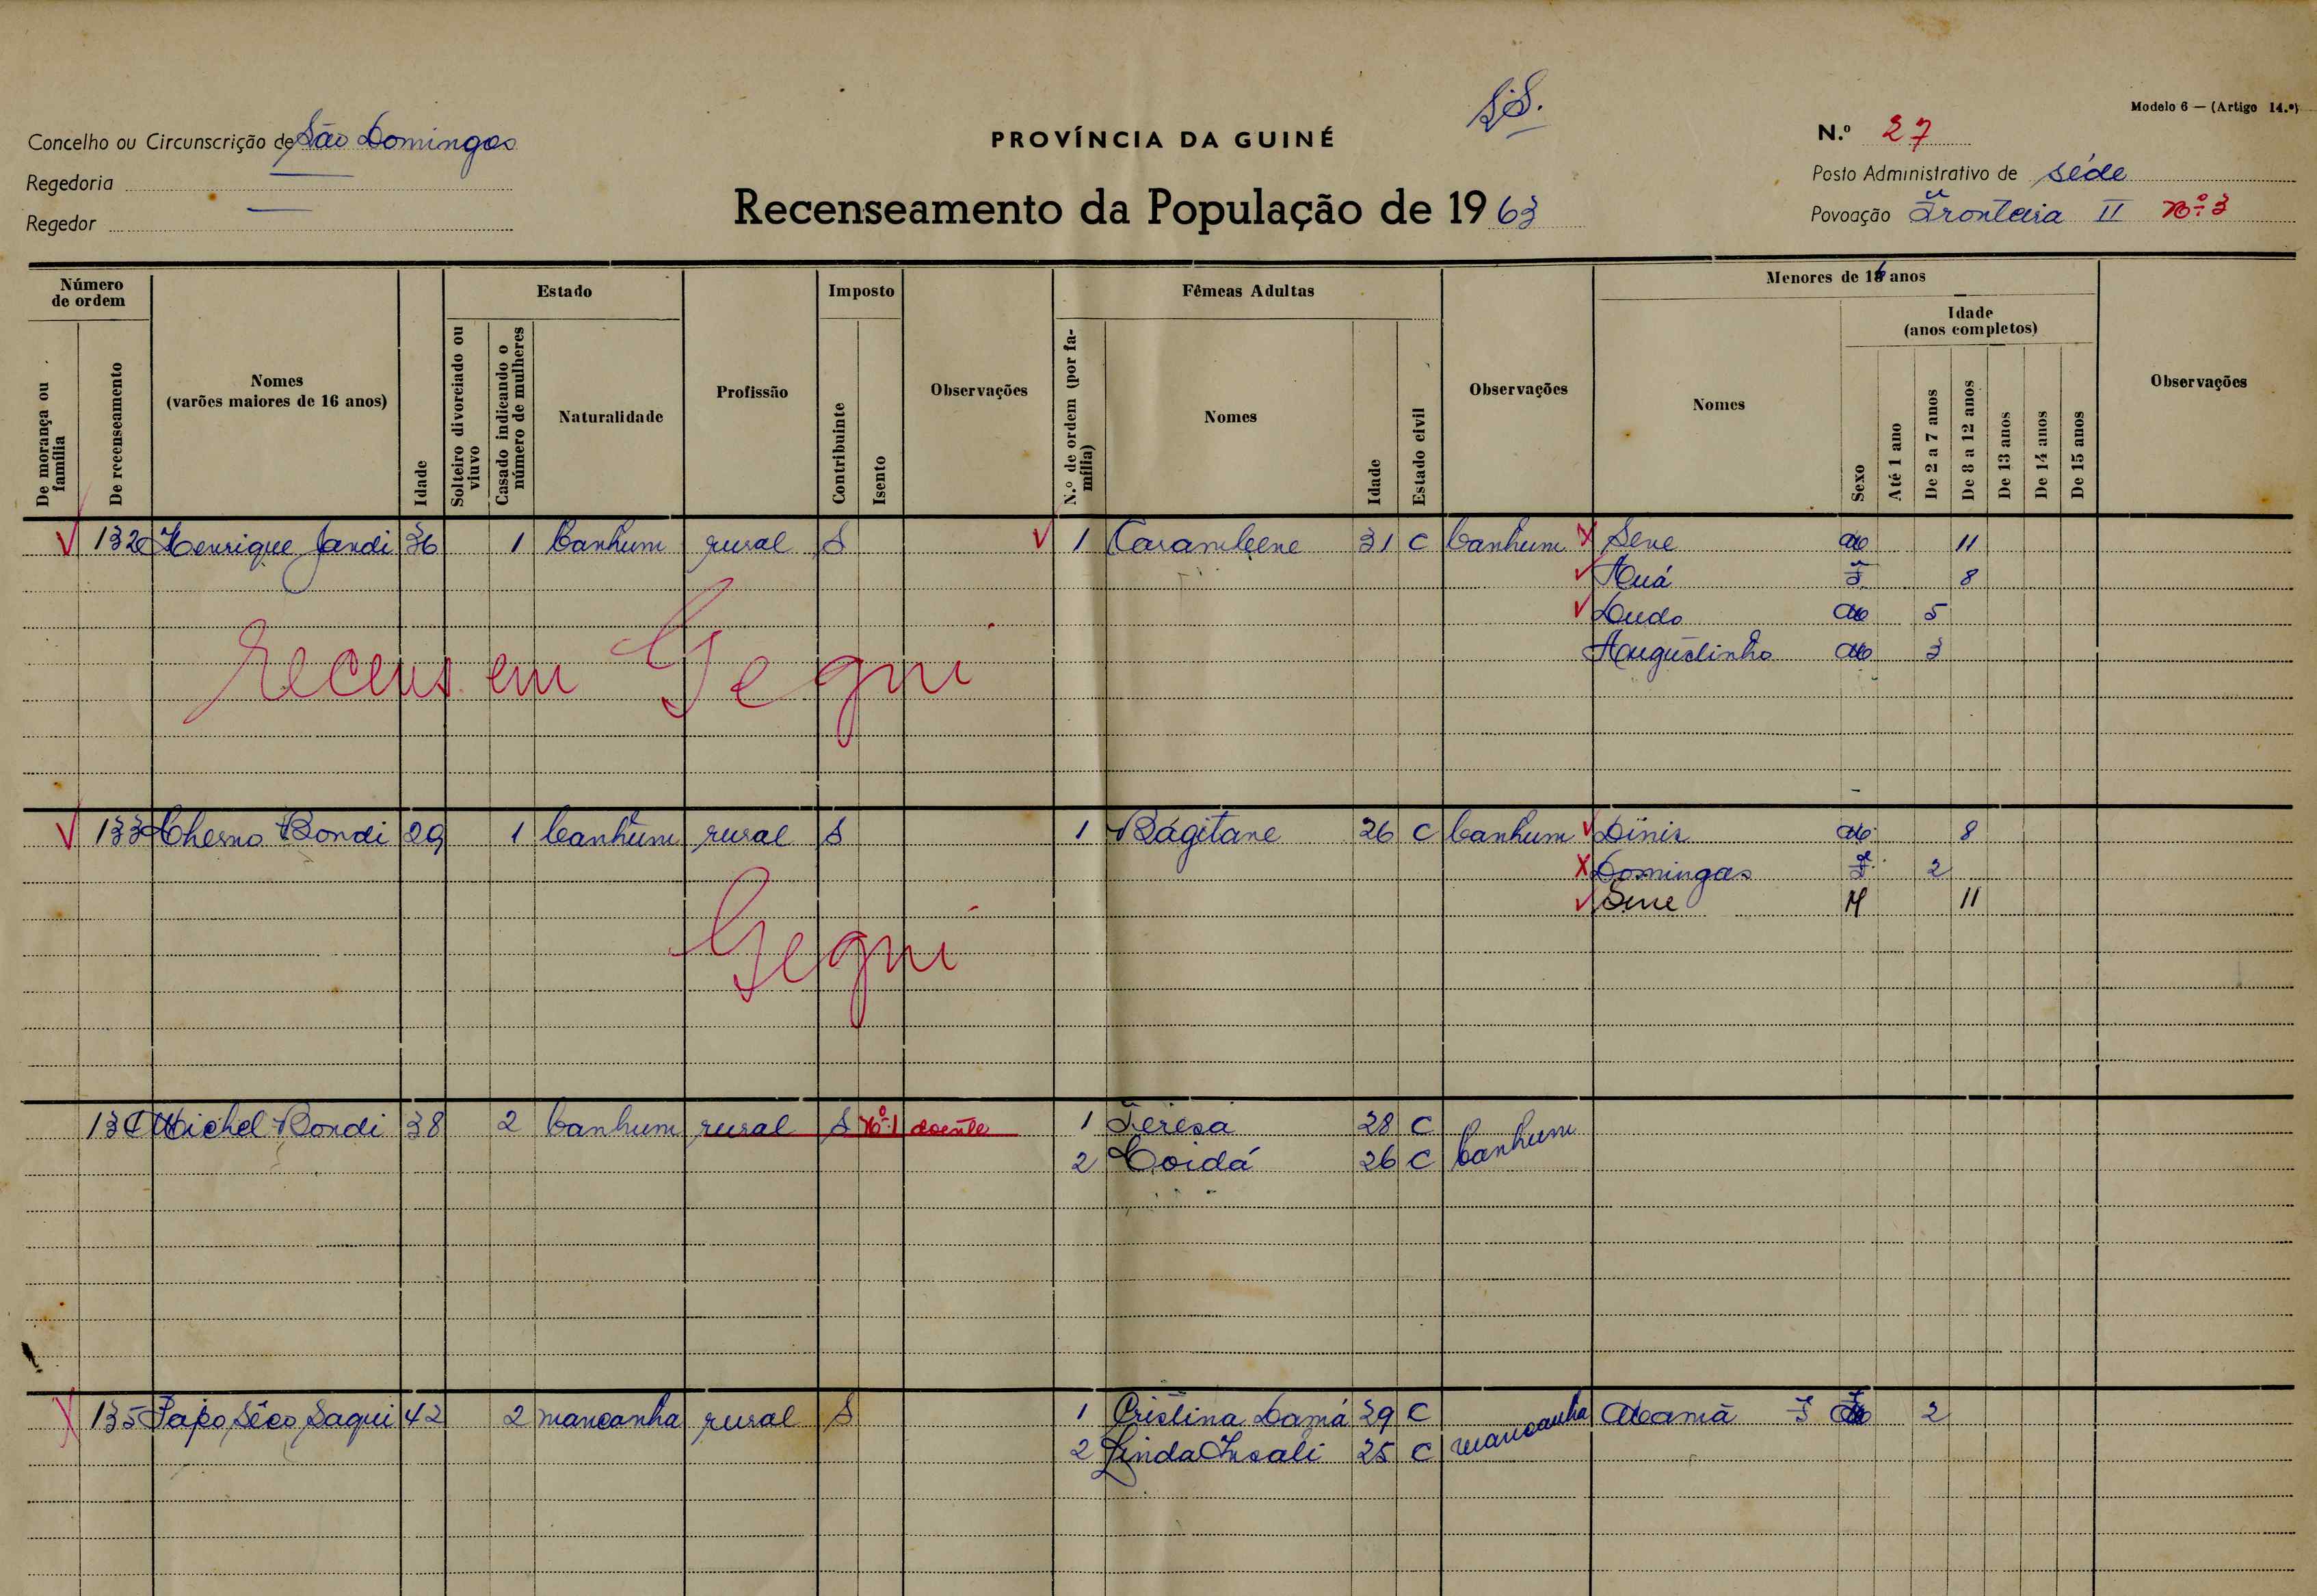 S.D.
Modelo 6 — (Artigo 14.º)
Concelho ou Circunscrição de São Domingos
PROVÍNCIA DA GUINÉ
N.º 27
Regedoria —
Posto Administrativo de séde
Regedor —
Recenseamento da População de 1963
Povoação Fronteira II Nº 3
Número de ordem
Estado
Imposto
Fêmeas Adultas
Menores de 16 anos
Idade (anos completos)
De morança ou família
De recenseamento
Nomes (varões maiores de 16 anos)
Idade
Solteiro divorciado ou viuvo
Casado indicando o número de mulheres
Naturalidade
Profissão
Contribuinte
Isento
Observações
N.º de ordem (por família)
Nomes
Idade
Estado civil
Observações
Nomes
Sexo
Até 1 ano
De 2 a 7 anos
De 8 a 12 anos
De 13 anos
De 14 anos
De 15 anos
Observações
132 Henrique Jandi 36 1 banhum rural S 1 31 C banhum Sene M 11
F 8
Dudo M 5
Augustinho M 3
recens. em Gegui
133 Cherno Bondi 29 1 banhum rural S 1 Bagitane 26 C banhum Dinis M 8
Domingas F 2
Sene M 11
Gegui
134 Michel Bondi 38 2 banhum rural S Nº 1 doente 1 Teresa 28 C banhum
2 26 C
135 Papo Sêco Saqui 42 2 mancanha rural S 1 Cristina Damá 29 C mancanha F 2
2 Linda Insali 25 C